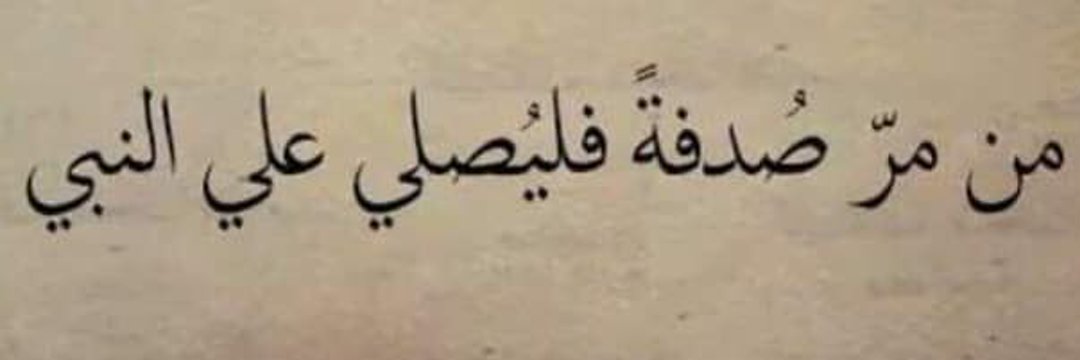 من مرّ صُدفةً فليُصلي علي النبي